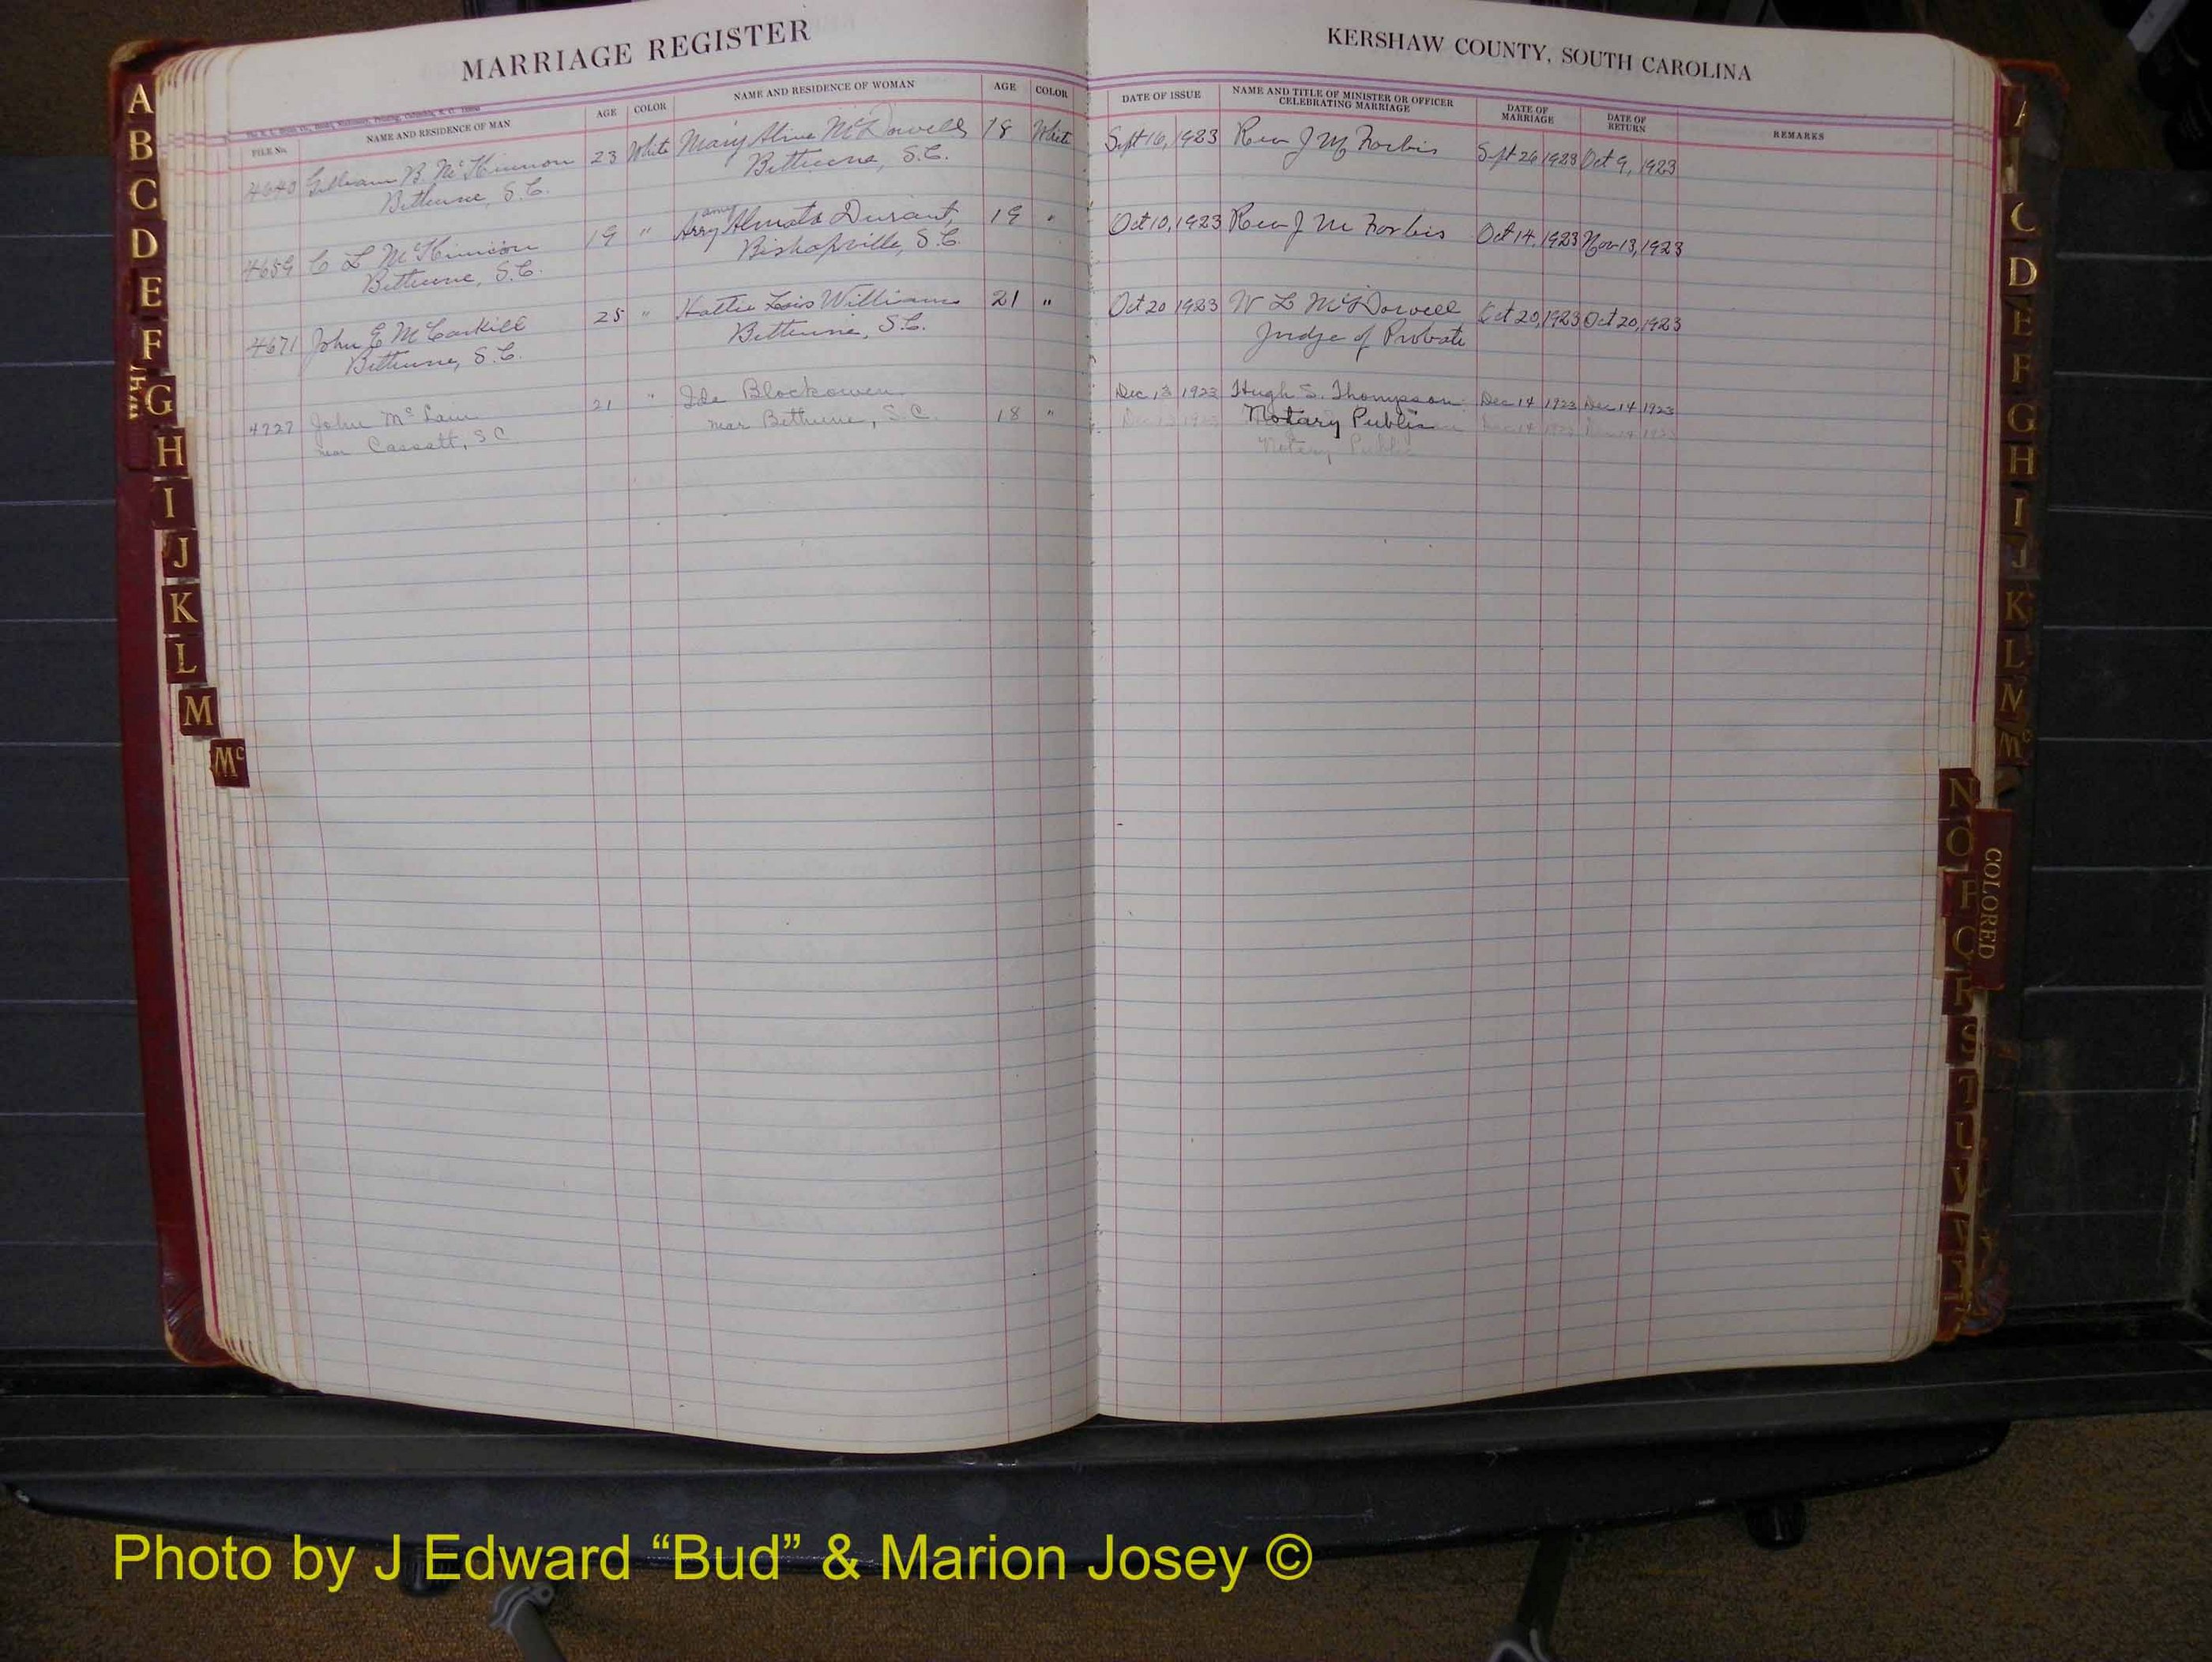 MARRIAGE REGISTER
KERSHAW COUNTY, SOUTH CAROLINA
FILE No.
NAME AND RESIDENCE OF MAN
AGE
COLOR
NAME AND RESIDENCE OF WOMAN
AGE
COLOR
DATE OF ISSUE
NAME AND TITLE OF MINISTER OR OFFICER
CELEBRATING MARRIAGE
DATE OF
MARRIAGE
DATE OF
RETURN
REMARKS
4640 B. McKinnon 23 White Mary Aline McDowell 18 White Sept 16, 1923 Rev J M Forbis Sept 26 1923 Oct 9, 1923
Bethune, S.C. Bethune, S.C.
4659 C L McKinnon 19 " Almata Durant, 19 " Oct 10, 1923 Rev J M Forbis Oct 14, 1923 Nov 13, 1923
Bethune, S.C. Bishopville, S.C.
4671 John E McCaskill 25 " Hattie Lois Williams 21 " Oct 20 1923 W L McDowell Oct 20, 1923 Oct 20, 1923
Bethune, S.C. Bethune, S.C. Judge of Probate
4727 John McLain 21 " Ida Blackowen 18 " Dec 13 1923 Hugh S. Thompson Dec 14 1923 Dec 14 1923
near Cassatt, S C near Bethune, S.C. Notary Public
Notary Public
A
B
C
D
E
F
G
H
I
J
K
L
M
Mc
C
D
E
F
G
H
I
J
K
L
M
Mc
N
O
P
Q
R
S
T
U
V
COLORED
Photo by J Edward “Bud” & Marion Josey ©